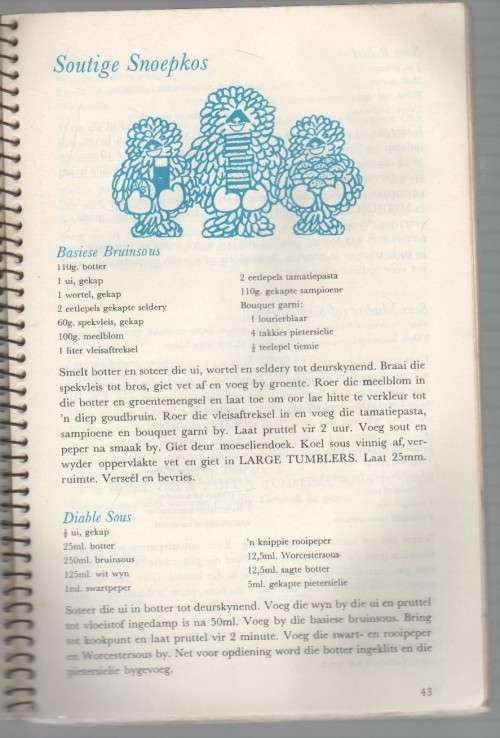 Soutige Snoepkos
Basiese Bruinsous
110g. botter
1 ui, gekap
1 wortel, gekap
2 eetlepels gekapte seldery
60g. spekvleis, gekap
100g. meelblom
1 liter vleisaftreksel
2 eetlepels tamatiepasta
110g. gekapte sampioene
Bouquet garni:
1 lourierblaar
4 takkies pietersielie
½ teelepel tiemie
Smelt botter en soteer die ui, wortel en seldery tot deurskynend. Braai die
spekvleis tot bros, giet vet af en voeg by groente. Roer die meelblom in
die botter en groentemengsel en laat toe om oor lae hitte te verkleur tot
'n diep goudbruin. Roer die vleisaftreksel in en voeg die tamatiepasta,
sampioene en bouquet garni by. Laat pruttel vir 2 uur. Voeg sout en
peper na smaak by. Giet deur moeseliendoek. Koel sous vinnig af, ver-
wyder oppervlakte vet en giet in LARGE TUMBLERS. Laat 25mm.
ruimte. Verseël en bevries.
Diable Sous
½ ui, gekap
25ml. botter
250ml. bruinsous
125ml. wit wyn
1ml. swartpeper
'n knippie rooipeper
12,5ml. Worcestersous
12,5ml. sagte botter
5ml. gekapte pietersielie
Soteer die ui in botter tot deurskynend. Voeg die wyn by die ui en pruttel
tot vloeistof ingedamp is na 50ml. Voeg by die basiese bruinsous. Bring
tot kookpunt en laat pruttel vir 2 minute. Voeg die swart- en rooipeper
en Worcestersous by. Net voor opdiening word die botter ingeklits en die
pietersielie bygevoeg.
43